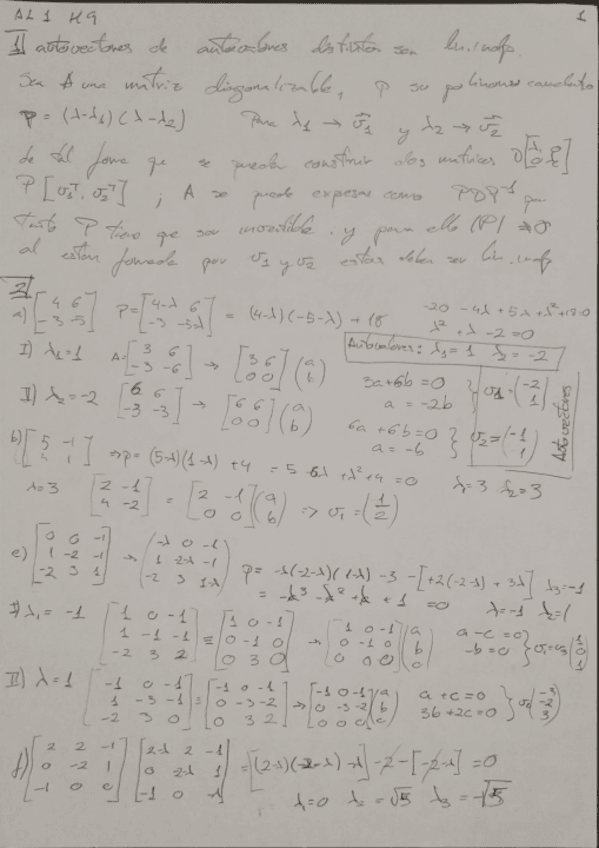 AL 1 H9 1
1] autovectores de autovalores distintos son lin. indp
Sea A una matriz diagonalizable, P su polinomio
P = (λ-λ₁)(λ-λ₂) Para λ₁ → v⃗₁ y λ₂ → v⃗₂
de tal forma que se puedan construir dos matrices D
P [v₁ᵀ, v₂ᵀ] ; A se puede expesar como PDP⁻¹ por
tanto P tiene que ser invertible. y para ello |P| ≠0
al estar formada por v₁ y v₂ estas deben ser lin. indp
2]
a) [4 6; -3 -5] P = [4-λ 6; -3 -5-λ] = (4-λ)(-5-λ) + 18 -20 -4λ + 5λ + λ² + 18 = 0
λ² + λ - 2 = 0
Autovalores: λ₁ = 1 λ₂ = -2
I) λ₁ = 1 A = [3 6; -3 -6] → [3 6; 0 0] (a; b) 3a + 6b = 0 a = -2b } v₁ = (-2; 1)
II) λ₂ = -2 [6 6; -3 -3] → [6 6; 0 0] (a; b) 6a + 6b = 0 a = -b } v₂ = (-1; 1) Autovectores
b) [5 -1; 4 1] ⇒ p = (5-λ)(1-λ) + 4 = 5 - 6λ + λ² + 4 = 0 λ₁ = 3 λ₂ = 3
λ = 3 [2 -1; 4 -2] = [2 -1; 0 0] (a; b) => v₁ = (1; 2)
e) [0 0 -1; 1 -2 -1; -2 3 1] → (-λ 0 -1; 1 -2-λ -1; -2 3 1-λ) P = -λ(-2-λ)(1-λ) - 3 - [+2(-2-λ) + 3λ] λ₃ = -1
= -λ³ - λ² + λ + 1 = 0 λ = -1 λ₂ = 1
I) λ₁ = -1 [1 0 -1; 1 -1 -1; -2 3 2] ≡ [1 0 -1; 0 -1 0; 0 3 0] → [1 0 -1; 0 -1 0; 0 0 0] (a; b; c) a - c = 0 -b = 0 } v₁ = v₃ (1; 0; 1)
II) λ = 1 [-1 0 -1; 1 -3 -1; -2 3 0] = [-1 0 -1; 0 -3 -2; 0 3 2] → [-1 0 -1; 0 -3 -2; 0 0 0] (a; b; c) a + c = 0 3b + 2c = 0 } (-3; -2; 3)
f) [2 2 -1; 0 -2 1; -1 0 0] [2-λ 2 -1; 0 -2-λ 1; -1 0 -λ] = [(2-λ)(-2-λ) -λ] - 2 - [-2-λ] = 0
λ = 0 λ₂ = √5 λ₃ = -√5